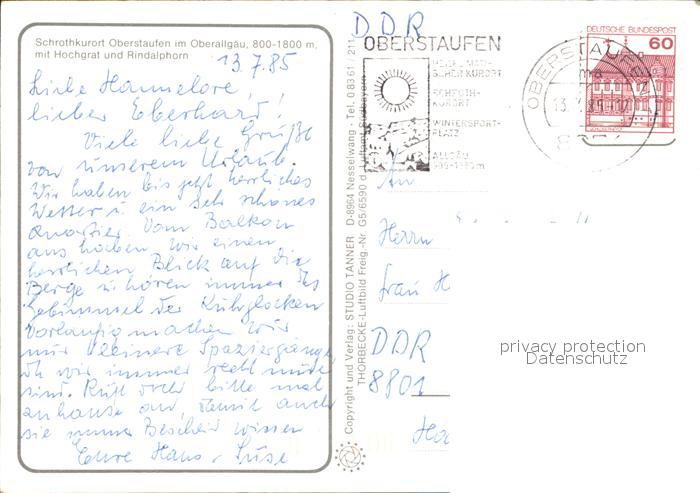 Schrothkurort Oberstaufen im Oberallgäu, 800-1800 m,
mit Hochgrat und Rindalphorn
13.7.85
Liebe Hannelore,
lieber Eberhard!
Viele liebe Grüße
von unserem Urlaub.
Wir haben bis jetzt herrliches
Wetter u. ein sehr schönes
Quartier. Vom Balkon
aus haben wir einen
herrlichen Blick auf die
Berge u. hören immer das
Gebimmel der Kuhglocken
Vorläufig machen wir
nur kleinere Spaziergänge,
da wir immer recht müde
sind. Ruft doch bitte mal
zuhause an, damit auch
sie immer Bescheid wissen
Eure Hans + Suse
Copyright und Verlag: STUDIO TANNER D-8964 Nesselwang - Tel. 0 83 61 / 211
THORBECKE-Luftbild Freig.-Nr. G5/6590 d. Luftamt Südbayern
DDR
OBERSTAUFEN
HEILKLIMATI-
SCHER KURORT
SCHROTH-
KURORT
WINTERSPORT-
PLATZ
ALLGÄU
OBERSTAUFEN
13.7.85-12
DEUTSCHE BUNDESPOST
60
An
Herrn
Frau H
DDR
8801
privacy protection
Datenschutz